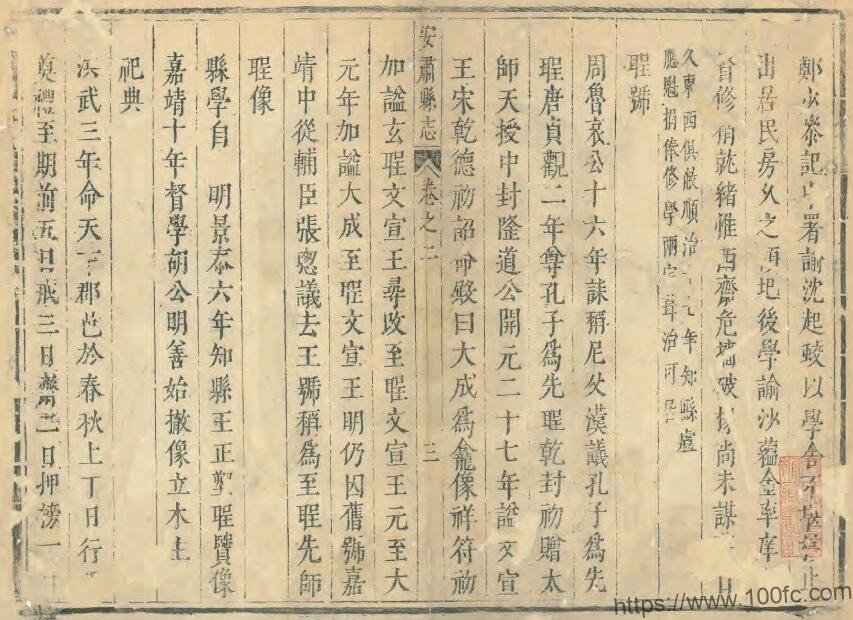 鄭永泰記 署諭沈起蛟以學舍
出居民房久之 地後學諭沙蘊金率庠
首修稍就緒惟西齋危墻破 尚未謀 日
久東西俱敝順治 元年知縣盧
應魁捐俸修學兩 葺治可居
聖號
周魯哀公十六年誄稱尼父漢議孔子爲先
聖唐貞觀二年尊孔子爲先聖乾封初贈太
師天授中封隆道公開元二十七年謚文宣
王宋乾德初詔命殿曰大成爲龕像祥符初
安肅縣志 卷之二 三
加謚玄聖文宣王尋改至聖文宣王元至大
元年加謚大成至聖文宣王明仍因舊號嘉
靖中從輔臣張璁議去王號稱爲至聖先師
聖像
縣學自 明景泰六年知縣王正塑聖賢像
嘉靖十年督學胡公明善始撤像立木主
祀典
洪武三年命天下郡邑於春秋上丁日行
奠禮至期前五日戒三日齋 日押牓一
https://www.100fc.com